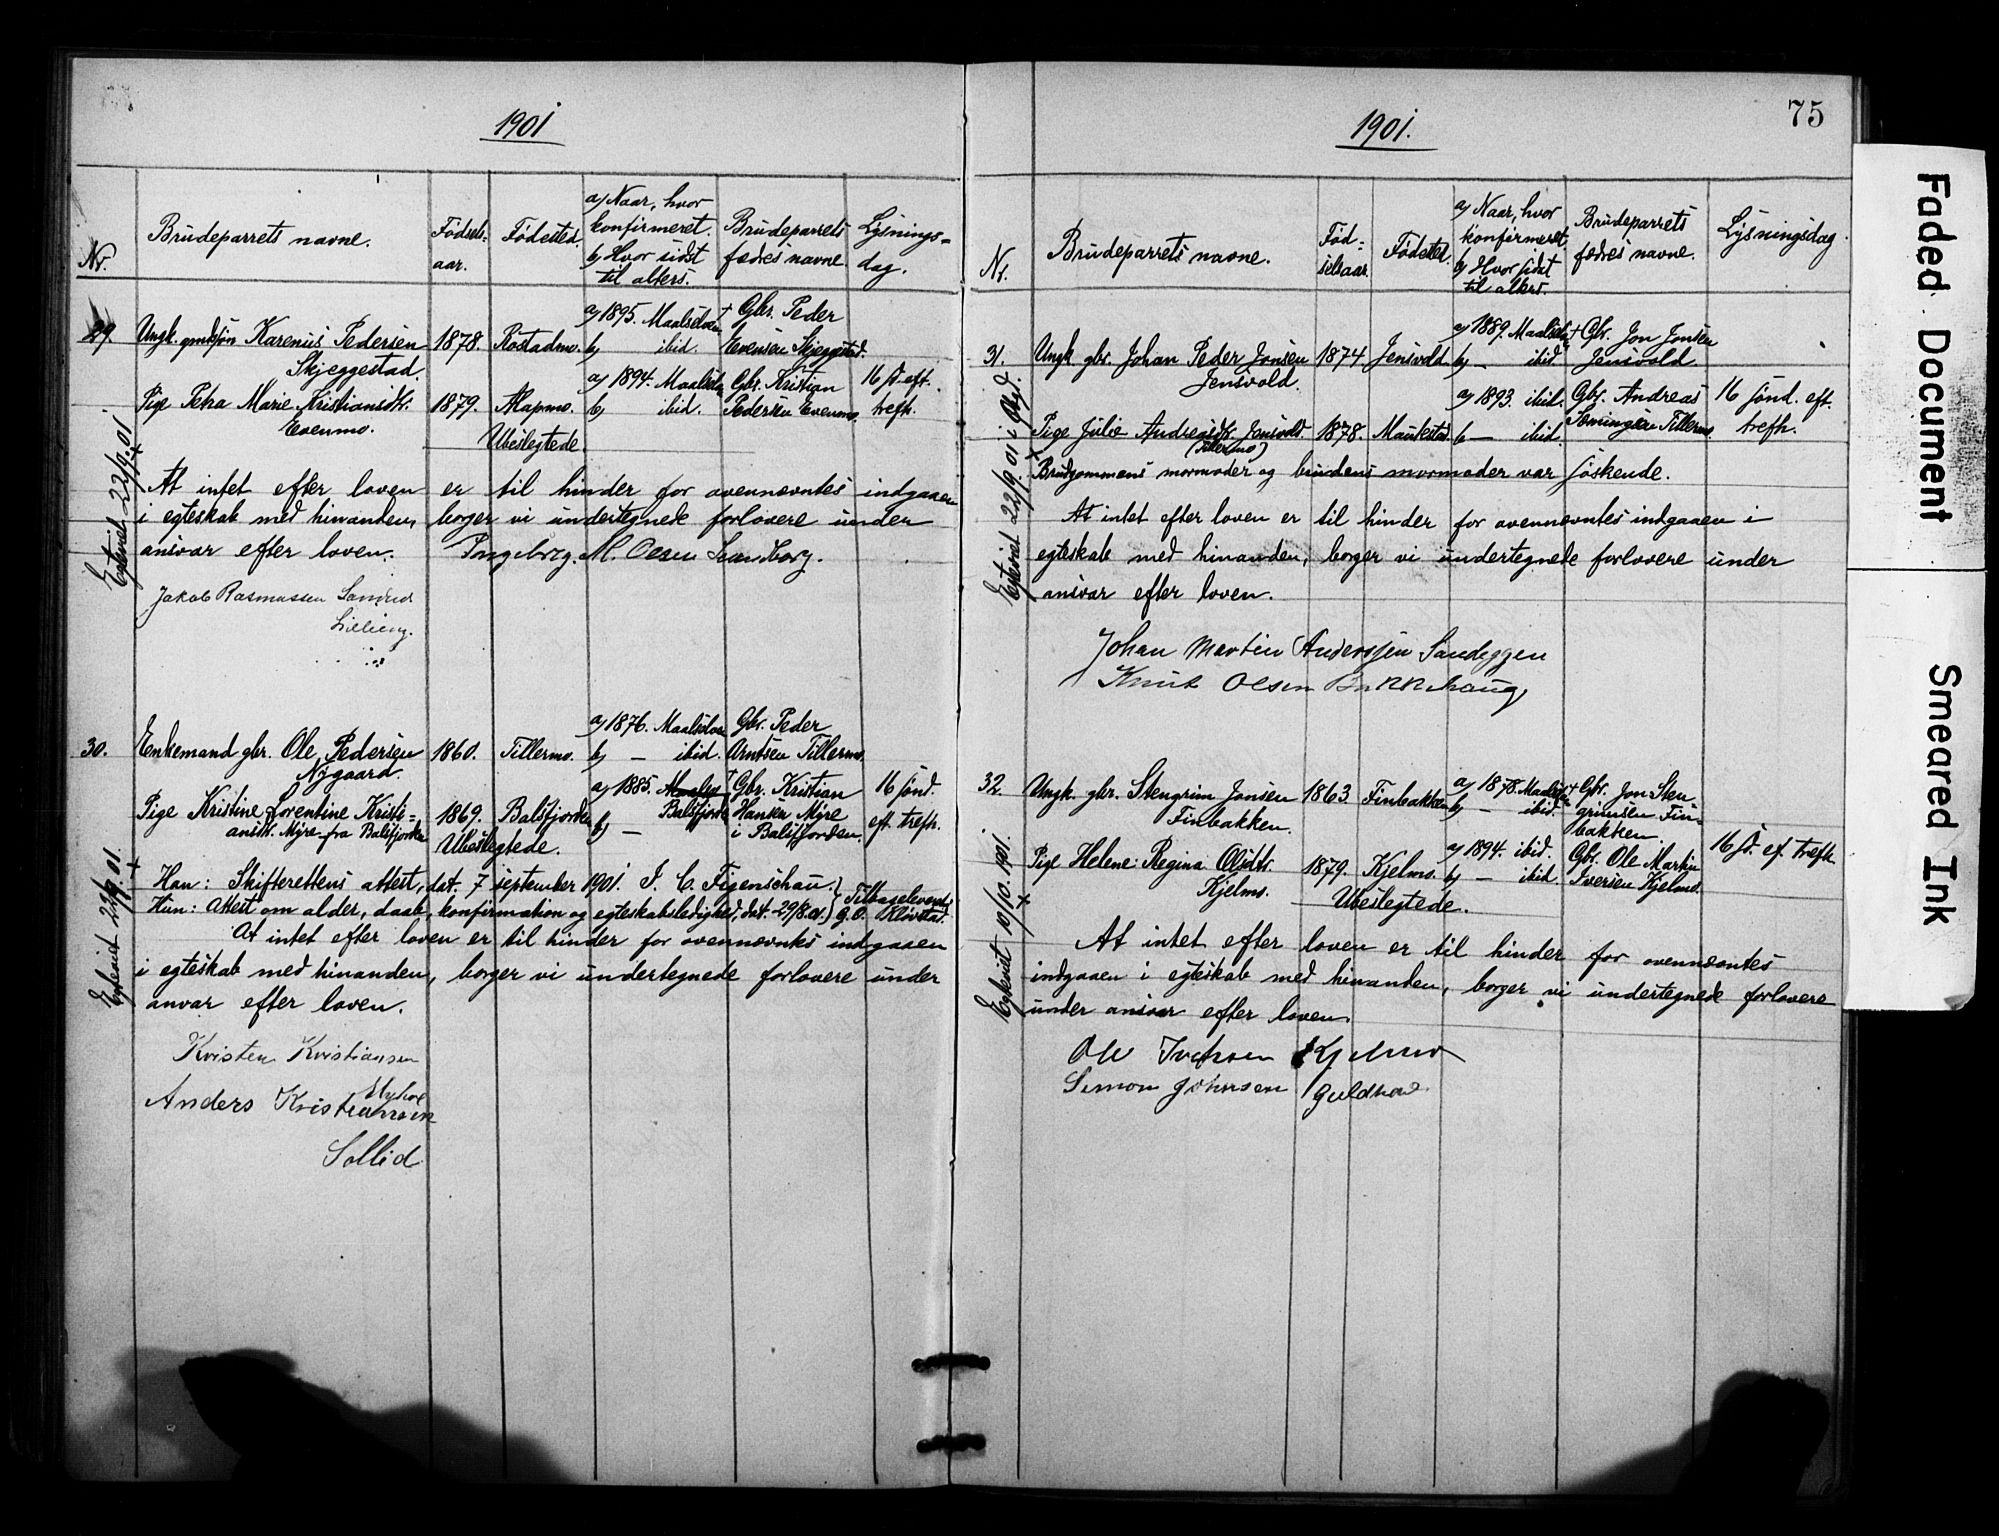 1901
Nr.
Brudeparrets navne.
Fødsels-
aar.
Fødested.
a) Naar, hvor
konfirmeret.
b) Hvor sidst
til alters.
Brudeparrets
fædres navne.
Lysnings-
dag.
29.
Ungk. gmdsøn Karenius Pedersen
Skjeggestad.
1878.
Rostadmo.
a) 1895. Maalselven
b) ibid.
+ Gbr. Peder
Evensen Skjeggestad.
Pige Petra Marie Kristiansdtr.
Evenmo.
1879.
Alapmo.
a) 1894. Maalselv
b) ibid.
Gbr. Kristian
Pedersen Evenmo.
16 s. eft.
trefh.
Ubeslegtede.
Egteviet 22/9. 01
At intet efter loven er til hinder for ovennævntes indgaaen
i egteskab med hinanden, borger vi undertegnede forlovere under
ansvar efter loven.
Ingeborg. M Olsen Sandborg.
Jakob Rasmussen
30.
Enkemand gbr. Ole Pedersen
Nygaard.
1860.
Tillermo.
a) 1876. Maalselven
b) — ibid.
Gbr. Peder
Arntsen Tillermo.
Pige Kristine Lorentine Kristi-
ansdtr. Myre fra Balsfjorden
1869.
Balsfjorden
a) 1885. Maalse
Balsfjorden
b) —
+ Gbr. Kristian
Hansen Myre
i Balsfjorden.
16 sønd.
eft. trefh.
Ubeslegtede.
Egteviet 22/9 01.
Han: Skifterettens attest, dat. 7 september 1901. I. C. Figenschau.
Hun: Attest om alder, daab, konfirmation og egteskabsledighed, dat. 29/8.01. G. O. Kløvstad.
Tilbageleveret
At intet efter loven er til hinder for ovennævntes indgaaen
i egteskab med hinanden, borger vi undertegnede forlovere under
anvar efter loven.
Kristen Kristiansen
Myhre
Anders Kristiansen
Sollid
1901.
75
Nr.
Brudeparrets navne.
Fød-
selsaar.
Fødested.
a) Naar, hvor
konfirmeret.
b) Hvor sidst
til alters.
Brudeparrets
fædres navne.
Lysningsdag.
31.
Ungk. gbr. Johan Peder Jonsen
Jensvold.
1874
Jensvold.
a) 1889. Maalselv
b) — ibid.
+ Gbr. Jon Jonsen
Jensvold.
Pige Julie Andreasdtr. Jensvold
(Tillermo)
1878.
Maukstad.
a) 1893. ibid.
b) — ibid.
Gbr. Andreas
Søminsen Tillermo.
16 sønd. eft.
trefh.
Brudgommens mormoder og brudens mormoder var søskende.
Egteviet 22/9 01
At intet efter loven er til hinder for ovennævntes indgaaen i
egteskab med hinanden, borger vi undertegnede forlovere under
ansvar efter loven.
Johan Martin Anderssen Sandeggen
Knut Olsen Bakkehaug
32.
Ungk. gbr. Stengrim Jonsen
Finbakken.
1863
Finbakken
a) 1878. Maalselv
b) — ibid.
+ Gbr. Jon Sten
grimsen Fin-
bakken.
Pige Helene Regina Olsdtr.
Kjelmo.
1879.
Kjelmo.
a) 1894. ibid.
b) — ibid.
Gbr. Ole Martin
Iversen Kjelmo.
16 s. ef. trefh
Ubeslegtede.
Egteviet 10/10. 1901.
At intet efter loven er til hinder for ovennævntes
indgaaen i egteskab med hinanden, borger vi undertegnede forlovere
under ansvar efter loven.
Ole Iversen Kjelmo
Simon Johnsen Guldhav
Faded Document
Smeared Ink